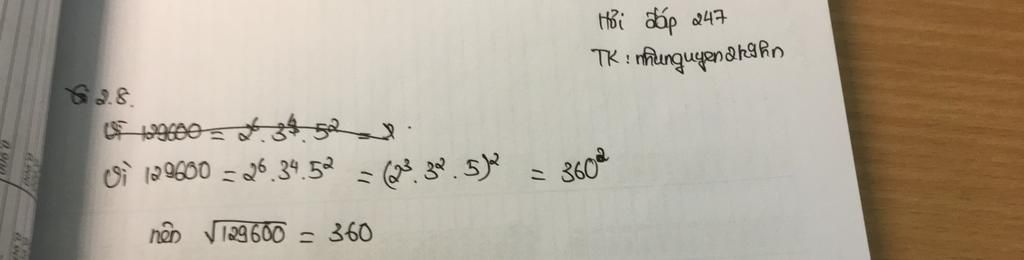 Hỏi đáp 247
TK: nhunguyen2k9hn
2.8.
Vì 129600 = 2^6 . 3^4 . 5^2 = 2
Vì 129600 = 2^6 . 3^4 . 5^2 = (2^3 . 3^2 . 5)^2 = 360^2
nên √129600 = 360